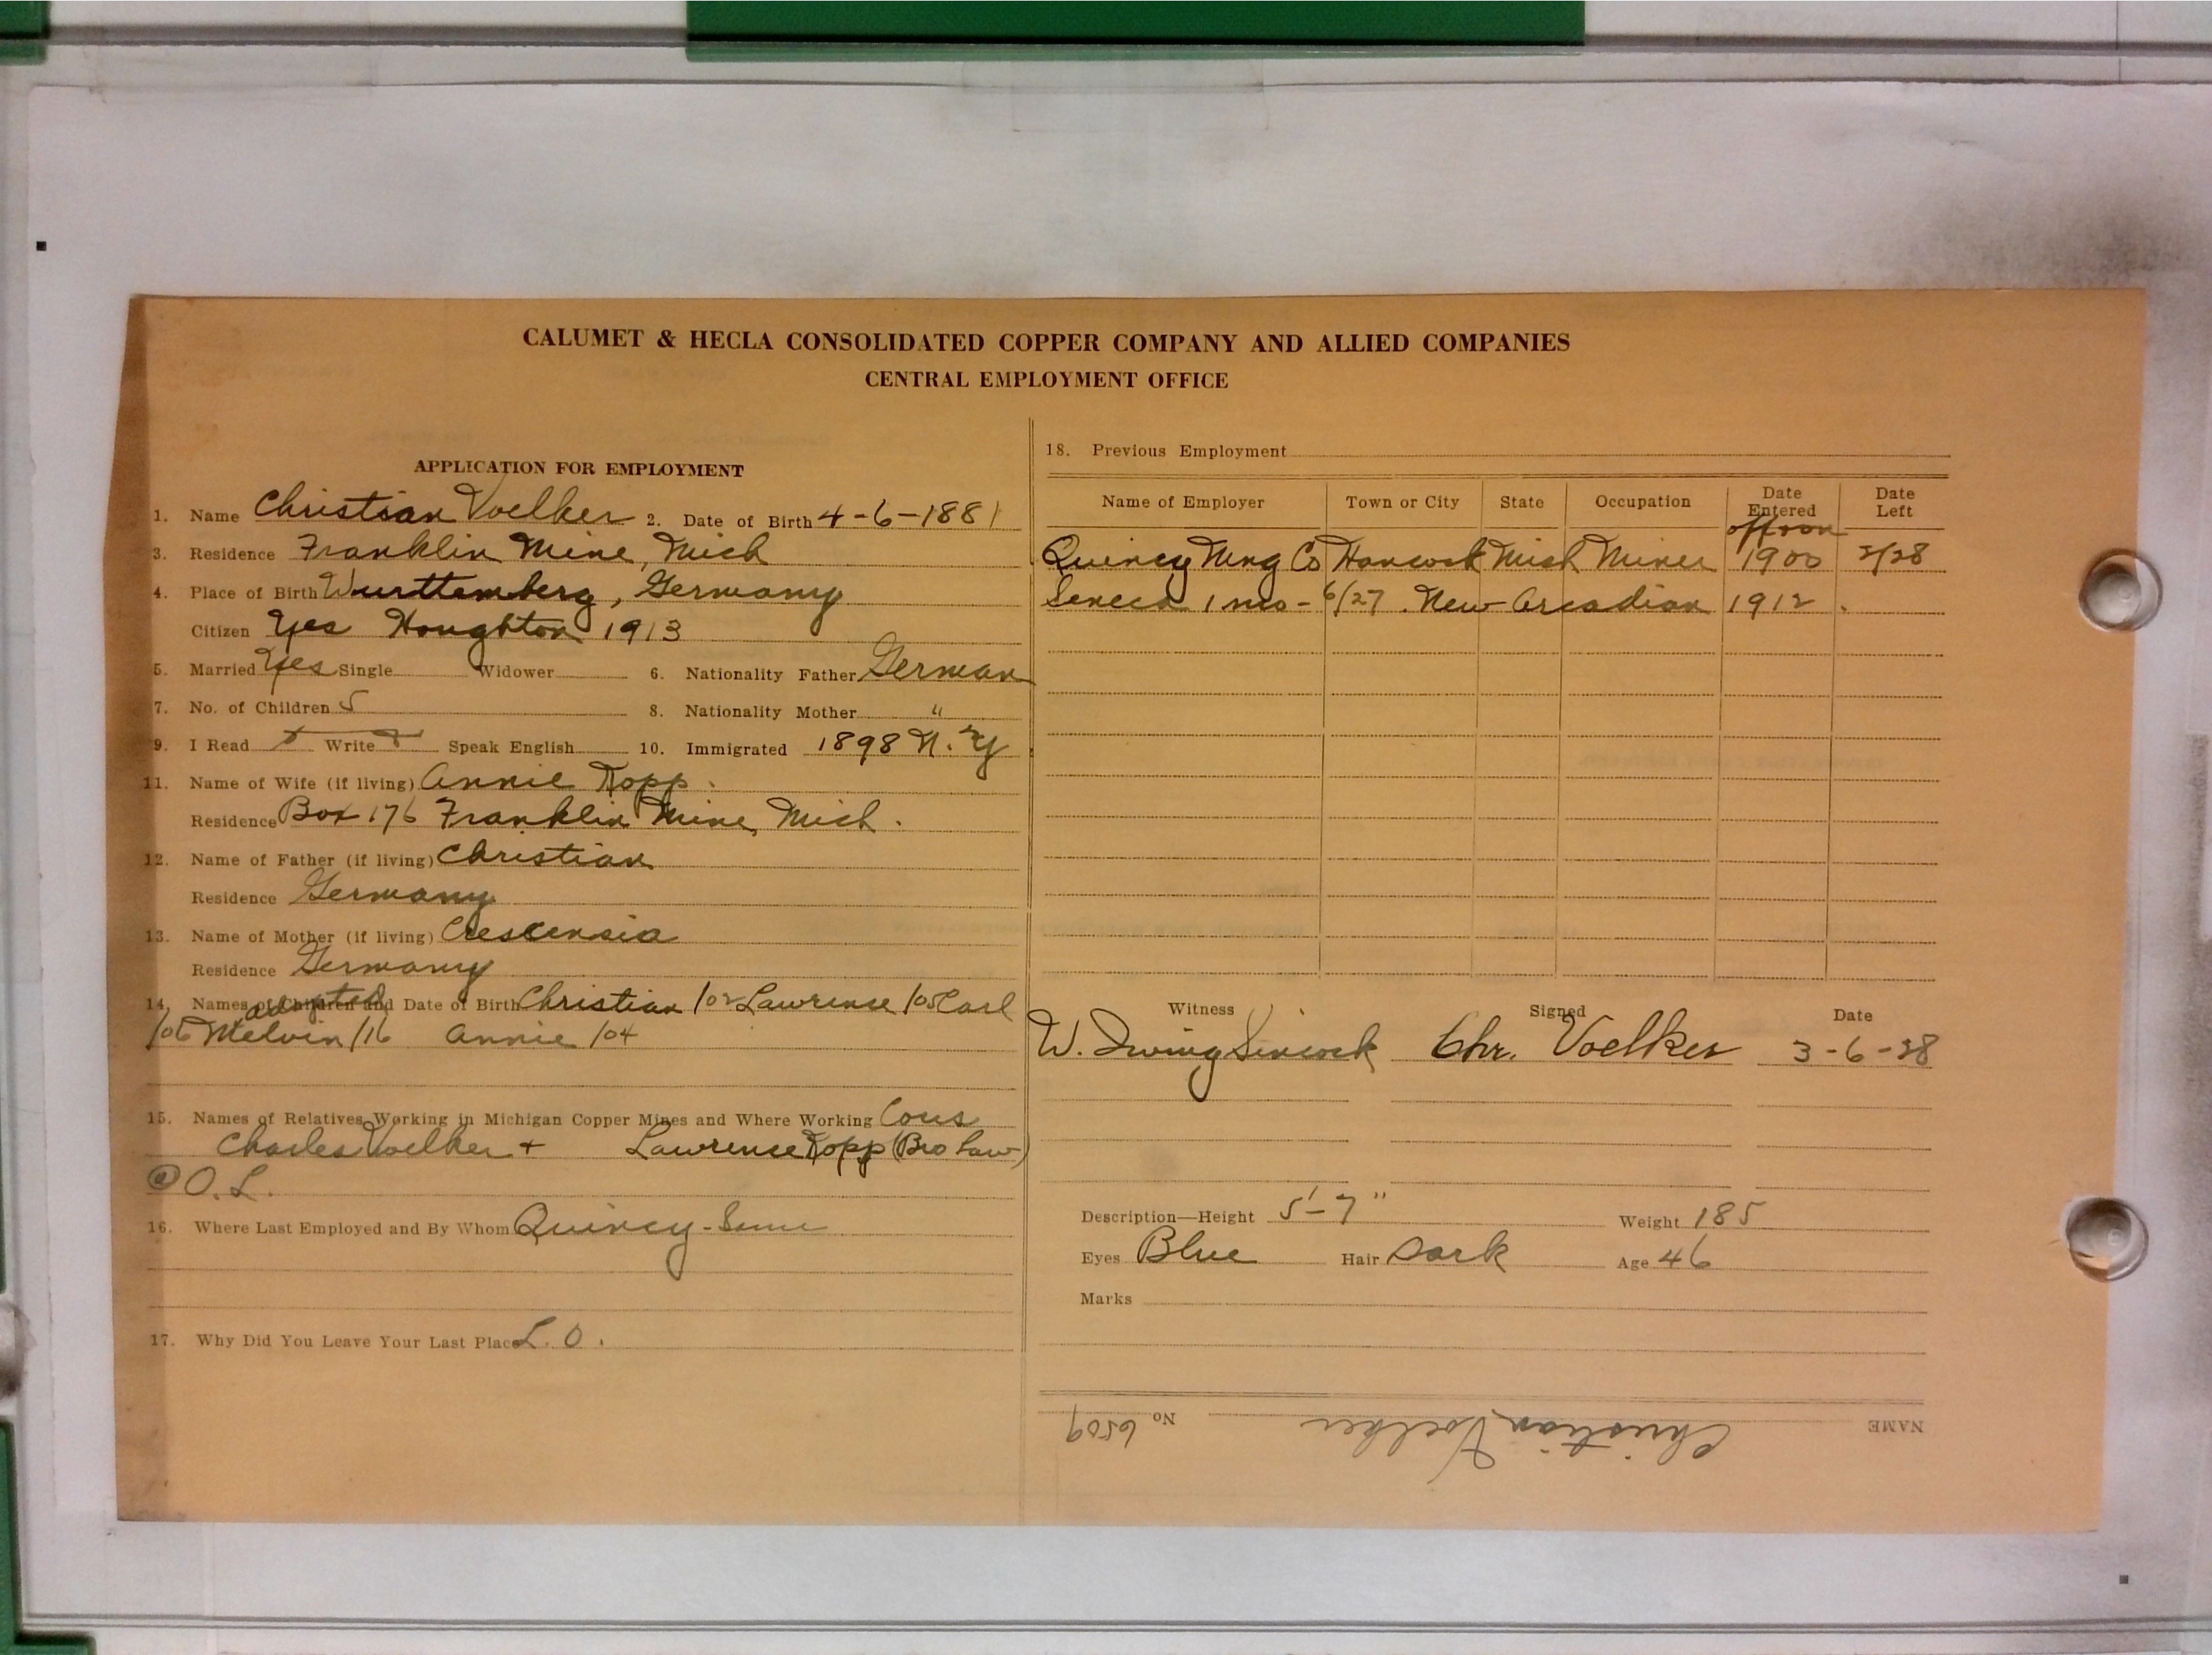 CALUMET & HECLA CONSOLIDATED COPPER COMPANY AND ALLIED COMPANIES
CENTRAL EMPLOYMENT OFFICE
APPLICATION FOR EMPLOYMENT
1. Name Christian Voelker 2. Date of Birth 4-6-1881
3. Residence Franklin Mine, Mich
4. Place of Birth Wurttemberg, Germany
Citizen Yes Houghton 1913
5. Married Yes Single Widower 6. Nationality Father German
7. No. of Children 5 8. Nationality Mother "
9. I Read Write Speak English 10. Immigrated 1898 N.Y
11. Name of Wife (if living) Annie Kopp.
Residence Box 176 Franklin Mine, Mich.
12. Name of Father (if living) Christian
Residence Germany
13. Name of Mother (if living) Crescensia
Residence Germany
14. Names of Children and Date of Birth Christian /02 Lawrense /05 Carl
adopted
/06 Melvin /16 Annie /04
15. Names of Relatives Working in Michigan Copper Mines and Where Working Cous
Charles Voelker + Lawrense Kopp (Bro Law)
@ O.L.
16. Where Last Employed and By Whom Quincy-
17. Why Did You Leave Your Last Place L.O.
18. Previous Employment
Name of Employer Town or City State Occupation Date Entered Date Left
off & on
Quincy Mng Co Hancock Mich Miner 1900 2/28
Seneca 1 mo- 6/27. New Arcadian 1912.
Witness Signed Date
W. Irving Sincock Chr. Voelker 3-6-28
Description—Height 5'-7" Weight 185
Eyes Blue Hair Dark Age 46
Marks
NAME Christian Voelker No 6509